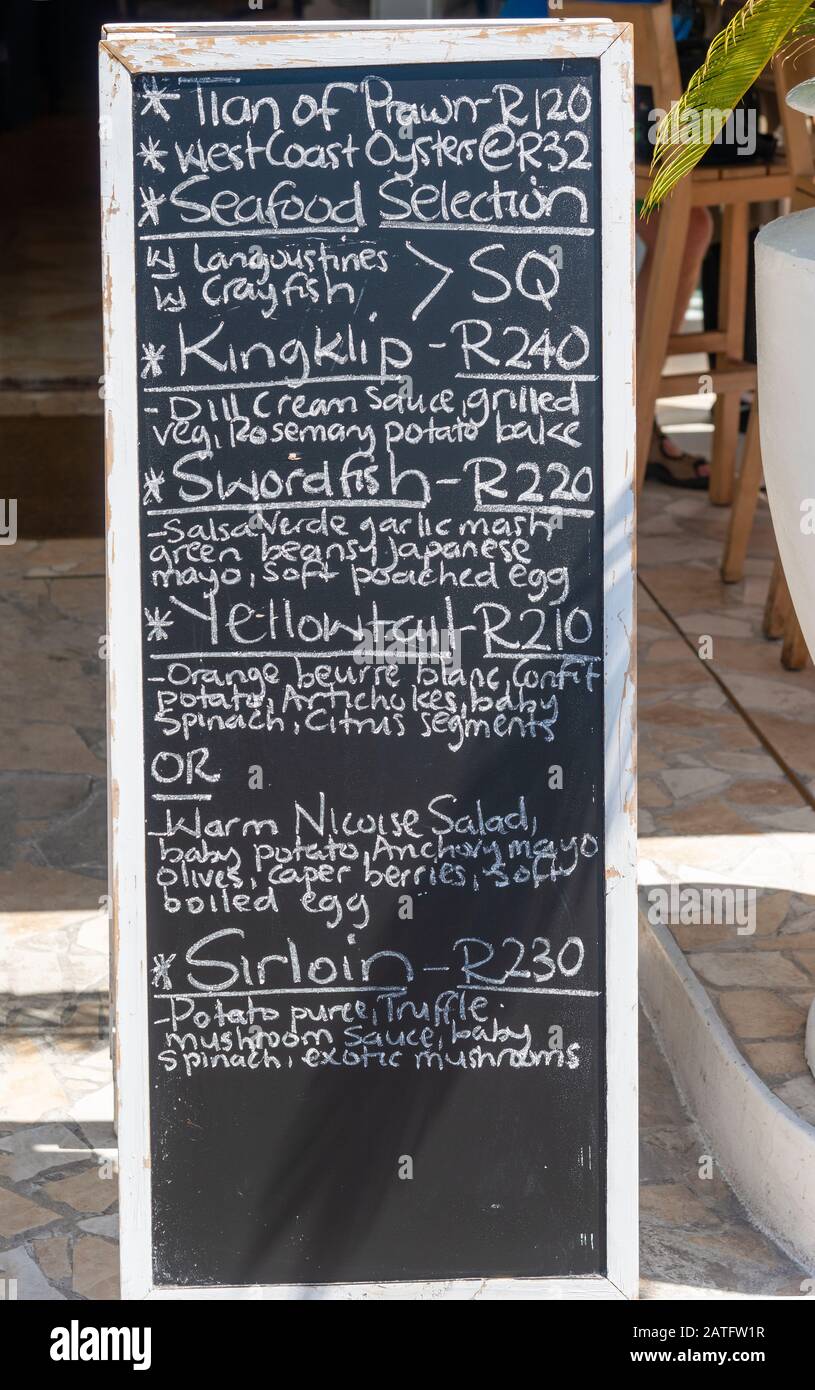 * Tian of Prawn-R120
* West Coast Oysters @ R32
* Seafood Selection
Langoustines
Crayfish > SQ
* Kingklip - R240
- Dill Cream Sauce, grilled
veg, Rosemary potato bake
* Swordfish - R220
- Salsa Verde garlic mash,
green beans, Japanese
mayo, soft poached egg
* Yellowtail - R210
- Orange beurre blanc, Confit
potato, Artichokes, baby
Spinach, Citrus segments
OR
- Warm Nicoise Salad,
baby potato, Anchovy mayo
olives, caper berries, soft
boiled egg
* Sirloin - R230
- Potato puree, Truffle
mushroom Sauce, baby
spinach, exotic mushrooms
alamy
Image ID: 2ATFW1R
www.alamy.com